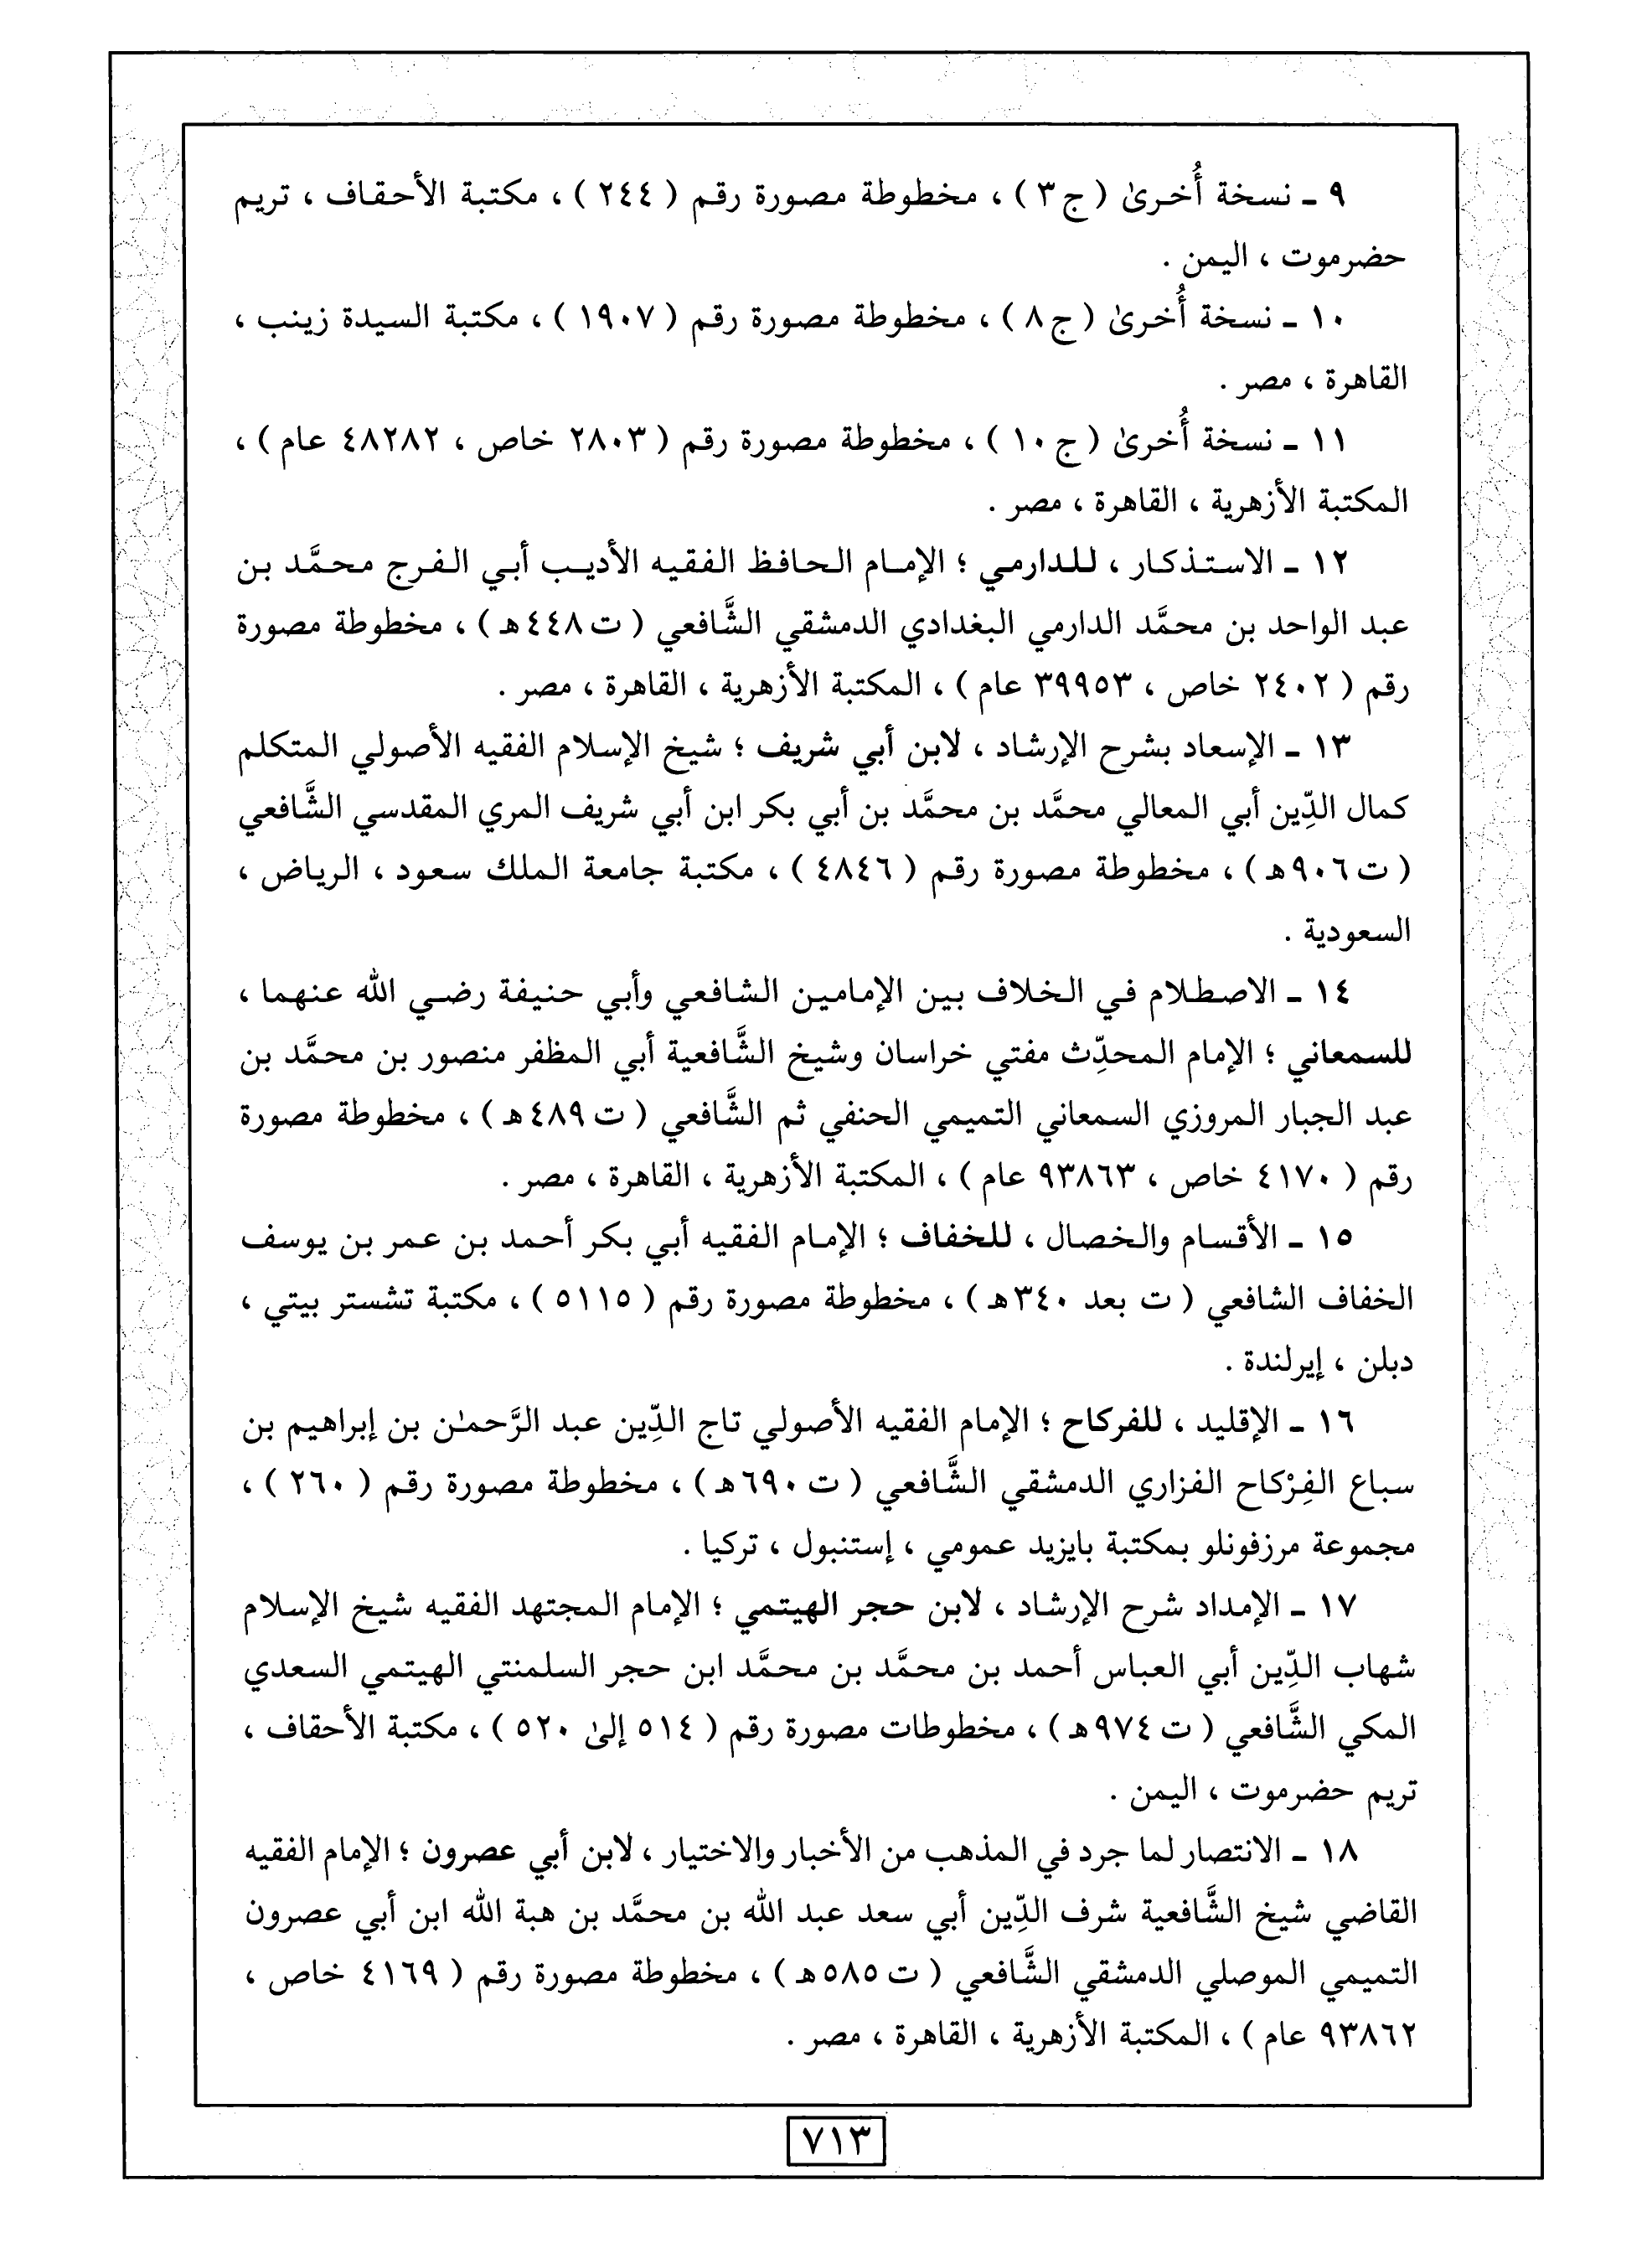 ٩ ـ نسخة أُخرىٰ ( ج ٣ ) ، مخطوطة مصورة رقم ( ٢٤٤ ) ، مكتبة الأحقاف ، تريم
حضرموت ، اليمن .
١٠ ـ نسخة أُخرىٰ ( ج ٨ ) ، مخطوطة مصورة رقم ( ١٩٠٧ ) ، مكتبة السيدة زينب ،
القاهرة ، مصر .
١١ ـ نسخة أُخرىٰ ( ج ١٠ ) ، مخطوطة مصورة رقم ( ٢٨٠٣ خاص ، ٤٨٢٨٢ عام ) ،
المكتبة الأزهرية ، القاهرة ، مصر .
١٢ ـ الاستذكار ، للدارمي ؛ الإمام الحافظ الفقيه الأديب أبي الفرج محمَّد بن
عبد الواحد بن محمَّد الدارمي البغدادي الدمشقي الشَّافعي ( ت ٤٤٨هـ ) ، مخطوطة مصورة
رقم ( ٢٤٠٢ خاص ، ٣٩٩٥٣ عام ) ، المكتبة الأزهرية ، القاهرة ، مصر .
١٣ ـ الإسعاد بشرح الإرشاد ، لابن أبي شريف ؛ شيخ الإسلام الفقيه الأصولي المتكلم
كمال الدِّين أبي المعالي محمَّد بن محمَّد بن أبي بكر ابن أبي شريف المري المقدسي الشَّافعي
( ت ٩٠٦هـ ) ، مخطوطة مصورة رقم ( ٤٨٤٦ ) ، مكتبة جامعة الملك سعود ، الرياض ،
السعودية .
١٤ ـ الاصطلام في الخلاف بين الإمامين الشافعي وأبي حنيفة رضي الله عنهما ،
للسمعاني ؛ الإمام المحدِّث مفتي خراسان وشيخ الشَّافعية أبي المظفر منصور بن محمَّد بن
عبد الجبار المروزي السمعاني التميمي الحنفي ثم الشَّافعي ( ت ٤٨٩هـ ) ، مخطوطة مصورة
رقم ( ٤١٧٠ خاص ، ٩٣٨٦٣ عام ) ، المكتبة الأزهرية ، القاهرة ، مصر .
١٥ ـ الأقسام والخصال ، للخفاف ؛ الإمام الفقيه أبي بكر أحمد بن عمر بن يوسف
الخفاف الشافعي ( ت بعد ٣٤٠هـ ) ، مخطوطة مصورة رقم ( ٥١١٥ ) ، مكتبة تشستر بيتي ،
دبلن ، إيرلندة .
١٦ ـ الإقليد ، للفركاح ؛ الإمام الفقيه الأصولي تاج الدِّين عبد الرَّحمٰن بن إبراهيم بن
سباع الفِرْكاح الفزاري الدمشقي الشَّافعي ( ت ٦٩٠هـ ) ، مخطوطة مصورة رقم ( ٢٦٠ ) ،
مجموعة مرزفونلو بمكتبة بايزيد عمومي ، إستنبول ، تركيا .
١٧ ـ الإمداد شرح الإرشاد ، لابن حجر الهيتمي ؛ الإمام المجتهد الفقيه شيخ الإسلام
شهاب الدِّين أبي العباس أحمد بن محمَّد بن محمَّد ابن حجر السلمنتي الهيتمي السعدي
المكي الشَّافعي ( ت ٩٧٤هـ ) ، مخطوطات مصورة رقم ( ٥١٤ إلىٰ ٥٢٠ ) ، مكتبة الأحقاف ،
تريم حضرموت ، اليمن .
١٨ ـ الانتصار لما جرد في المذهب من الأخبار والاختيار ، لابن أبي عصرون ؛ الإمام الفقيه
القاضي شيخ الشَّافعية شرف الدِّين أبي سعد عبد الله بن محمَّد بن هبة الله ابن أبي عصرون
التميمي الموصلي الدمشقي الشَّافعي ( ت ٥٨٥هـ ) ، مخطوطة مصورة رقم ( ٤١٦٩ خاص ،
٩٣٨٦٢ عام ) ، المكتبة الأزهرية ، القاهرة ، مصر .
٧١٣